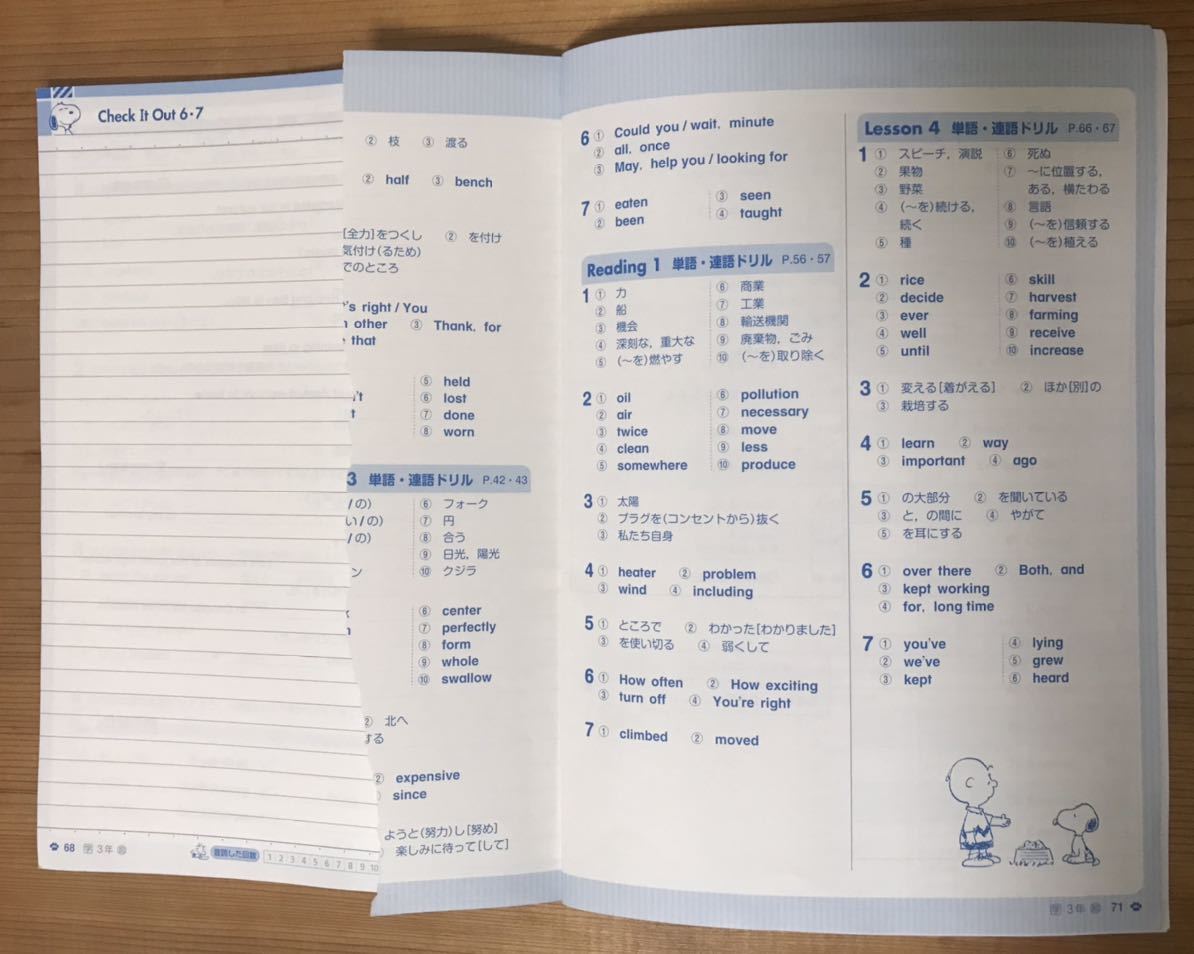 Check It Out 6・7
68 3年
音読した回数 1 2 3 4 5 6 7 8 9 10
② 枝 ③ 渡る
② half ③ bench
[全力]をつくし ② を付け
気付け(るため)
でのところ
's right / You
other ③ Thank, for
that
⑤ held
⑥ lost
⑦ done
⑧ worn
3 単語・連語ドリル P.42・43
/の) ⑥ フォーク
い/の) ⑦ 円
/の) ⑧ 合う
⑨ 日光, 陽光
ン ⑩ クジラ
⑥ center
⑦ perfectly
⑧ form
⑨ whole
⑩ swallow
② 北へ
する
② expensive
since
ようと(努力)し[努め]
楽しみに待って[して]
6 ① Could you / wait, minute
② all, once
③ May, help you / looking for
7 ① eaten ③ seen
② been ④ taught
Reading 1 単語・連語ドリル P.56・57
1 ① 力 ⑥ 商業
② 船 ⑦ 工業
③ 機会 ⑧ 輸送機関
④ 深刻な, 重大な ⑨ 廃棄物, ごみ
⑤ (〜を)燃やす ⑩ (〜を)取り除く
2 ① oil ⑥ pollution
② air ⑦ necessary
③ twice ⑧ move
④ clean ⑨ less
⑤ somewhere ⑩ produce
3 ① 太陽
② プラグを(コンセントから)抜く
③ 私たち自身
4 ① heater ② problem
③ wind ④ including
5 ① ところで ② わかった[わかりました]
③ を使い切る ④ 弱くして
6 ① How often ② How exciting
③ turn off ④ You're right
7 ① climbed ② moved
Lesson 4 単語・連語ドリル P.66・67
1 ① スピーチ, 演説 ⑥ 死ぬ
② 果物 ⑦ 〜に位置する,
③ 野菜 ある, 横たわる
④ (〜を)続ける, ⑧ 言語
続く ⑨ (〜を)信頼する
⑤ 種 ⑩ (〜を)植える
2 ① rice ⑥ skill
② decide ⑦ harvest
③ ever ⑧ farming
④ well ⑨ receive
⑤ until ⑩ increase
3 ① 変える[着がえる] ② ほか[別]の
③ 栽培する
4 ① learn ② way
③ important ④ ago
5 ① の大部分 ② を聞いている
③ と, の間に ④ やがて
⑤ を耳にする
6 ① over there ② Both, and
③ kept working
④ for, long time
7 ① you've ④ lying
② we've ⑤ grew
③ kept ⑥ heard
3年 71